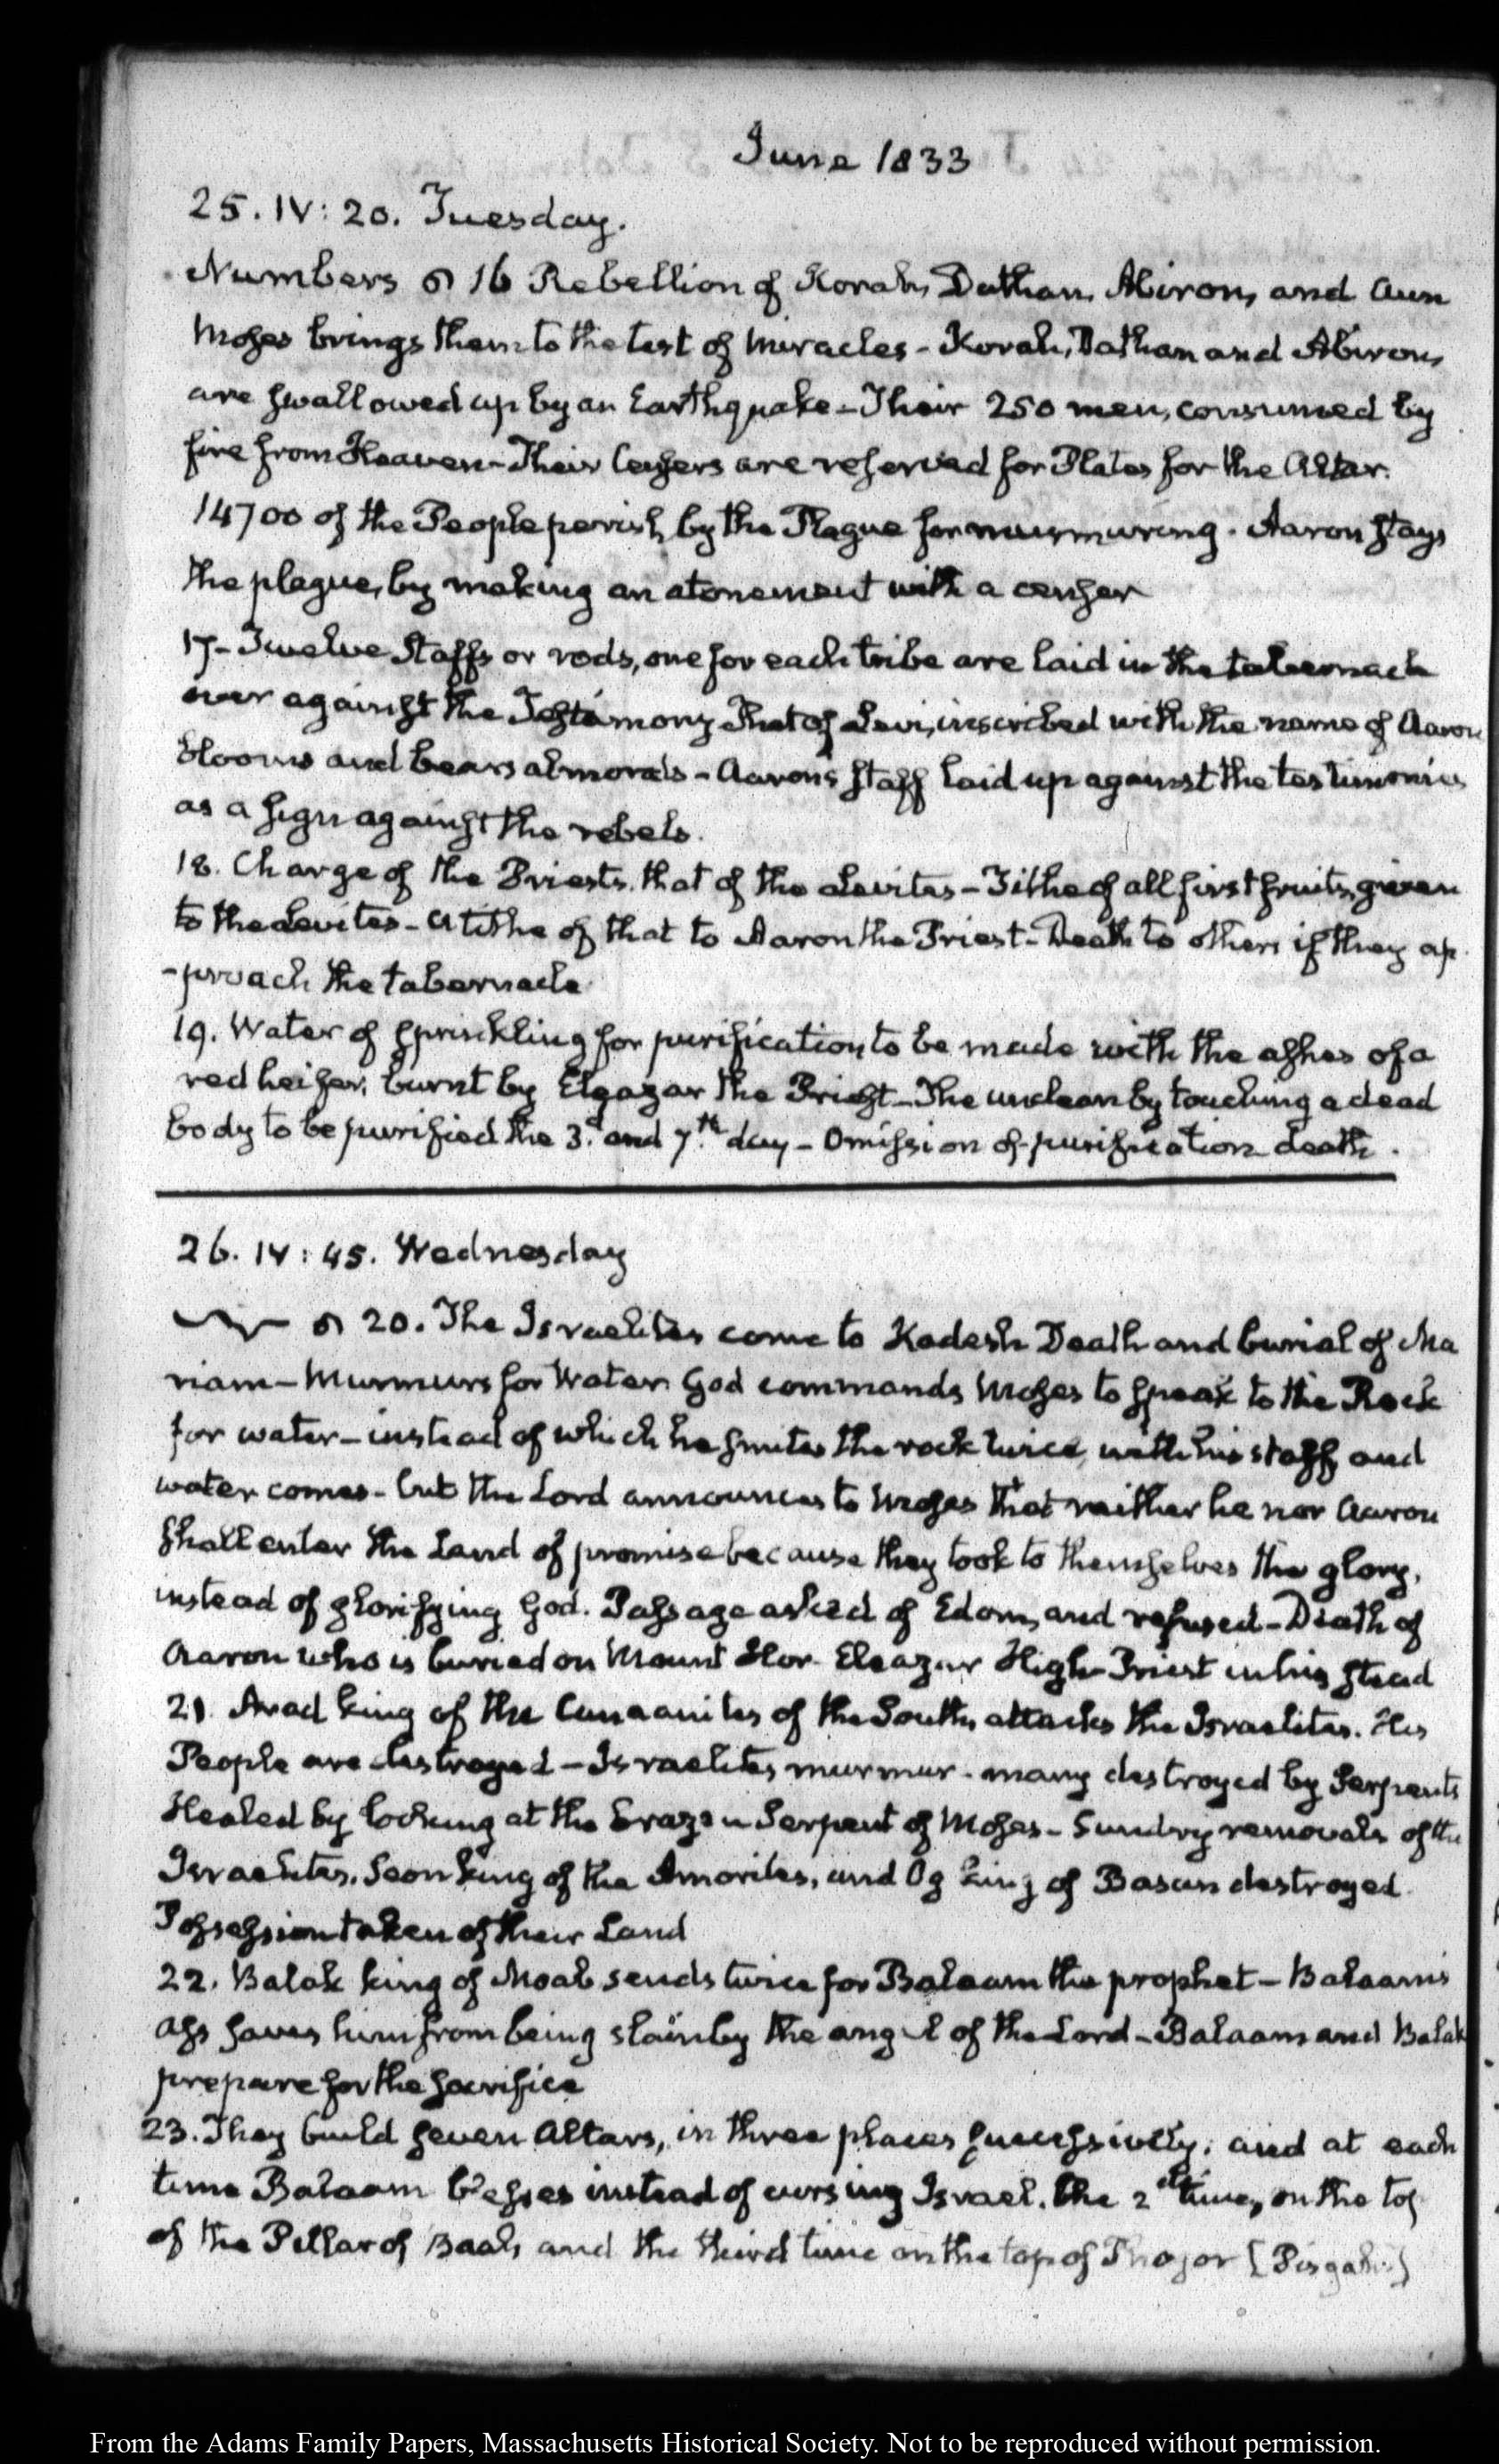 June 1833
25. IV: 20. Tuesday.
Numbers 16 Rebellion of Korah, Dathan, Abiron, and Aun
Moses brings them to the test of Miracles - Korah, Dathan and Abiron,
are swallowed up by an Earthquake - Their 250 men, consumed by
fire from Heaven - Their Censers are reserved for Plates for the Altar.
14700 of the People perish, by the Plague for murmuring. Aaron stays
the plague, by making an atonement with a censer
17 - Twelve Staffs or rods, one for each tribe are laid in the tabernacle
over against the Testimony That of Levi, inscribed with the name of Aaron
blooms and bears almonds - Aaron's staff laid up against the testimonies
as a sign against the rebels.
18. Charge of the Priests, that of the Levites - Tithe of all first fruits, given
to the Levites - A tithe of that to Aaron the Priest - Death to others if they ap
-proach the tabernacle
19. Water of sprinkling for purification, to be made with the ashes of a
red heifer, burnt by Eleazar the Priest - The unclean by touching a dead
body to be purified the 3.d and 7.th day - Omission of purification death.
26. IV: 45. Wednesday
20. The Israelites come to Kadesh Death and burial of Ma
riam - Murmurs for Water. God commands Moses to speak to the Rock
for water - instead of which he smites the rock twice, with his staff and
water comes - but the Lord announces to Moses that neither he nor Aaron
shall enter the Land of promise because they took to themselves the glory,
instead of glorifying God. Passage asked of Edom, and refused - Death of
Aaron who is buried on Mount Hor. Eleazar High-Priest in his stead
21. Arad king of the Canaanites of the South, attacks the Israelites. His
People are destroyed - Israelites murmur. many destroyed by Serpents
Healed by looking at the brazen Serpent of Moses - Sundry removals of the
Israelites. Seon king of the Amorites, and Og king of Basan destroyed.
Possession taken of their Land
22. Balak king of Moab sends twice for Balaam the prophet - Balaam's
ass saves him from being slain by the angel of the Lord - Balaam and Balak
prepare for the sacrifice
23. They build seven Altars, in three places successively, and at each
time Balaam blesses instead of cursing Israel. The 2d time, on the top
of the Pillar of Baal, and the third time on the top of Phogor [Pisgah]
From the Adams Family Papers, Massachusetts Historical Society. Not to be reproduced without permission.